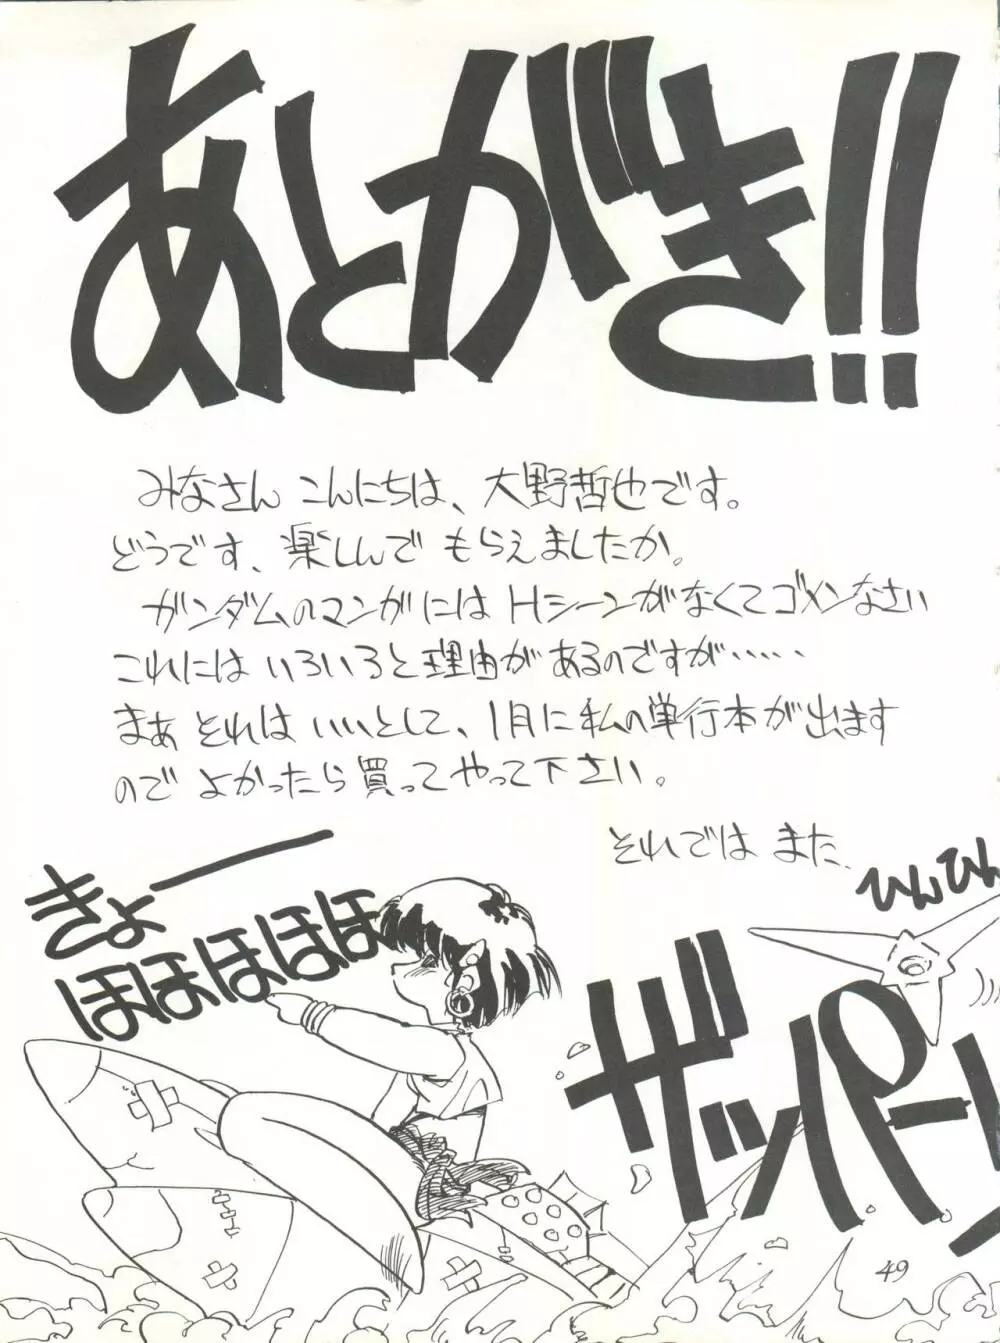 あとがき!!
みなさん こんにちは、大野哲也です。
どうです、楽しんで もらえましたか。
ガンダムのマンガには Hシーンがなくてゴメンなさい
これには いろいろと理由が あるのですが……
まぁ それは いいとして、1月に私の単行本が出ます
ので よかったら 買って やって下さい。
それでは また、
きょー
ほほほほほ
ひんひん
ザッパーン
49